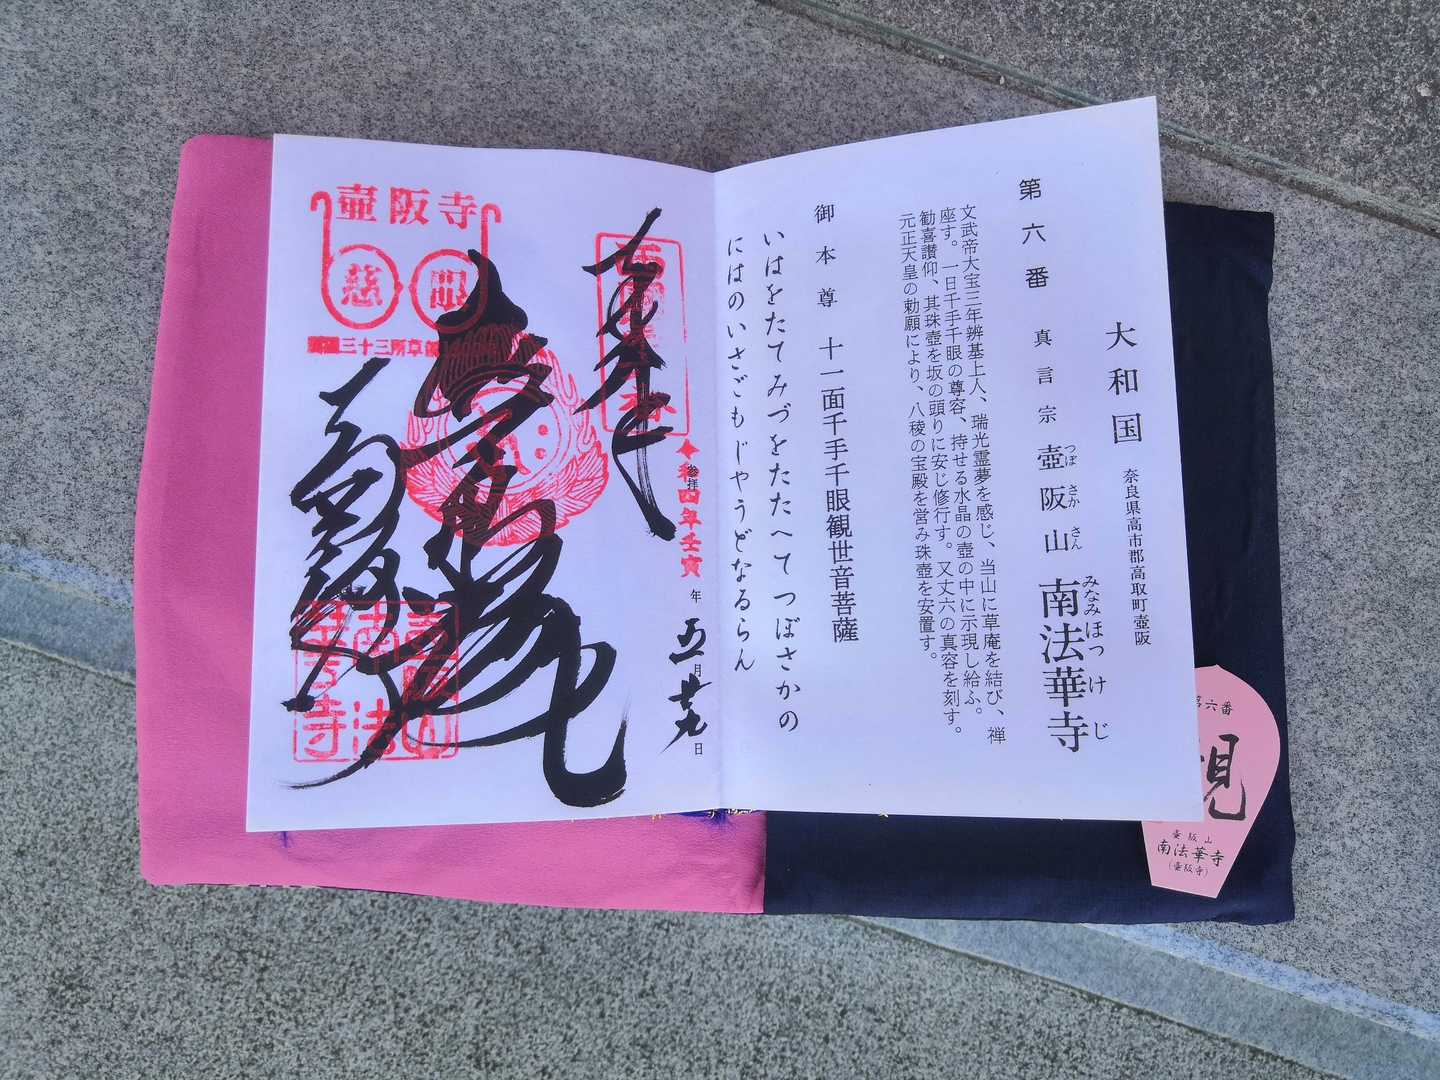 大和国
奈良県高市郡高取町壺阪
第六番 真言宗 壺阪山 南法華寺
つぼ さか さん みなみほっけじ
文武帝大宝三年辨基上人、瑞光霊夢を感じ、当山に草庵を結び、禅
座す。一日千手千眼の尊容、持せる水晶の壺の中に示現し給ふ。
勧喜讃仰、其珠壺を坂の頭りに安じ修行す。又丈六の真容を刻す。
元正天皇の勅願により、八稜の宝殿を営み珠壺を安置す。
御本尊 十一面千手千眼観世音菩薩
いはをたてみづをたたへてつぼさかの
にはのいさごもじやうどなるらん
参拝
令和四年壬寅
年五月廿九日
壺阪寺
慈眼
三十三所草創
南法華寺
第六番
観
壷阪山
南法華寺
(壷阪寺)